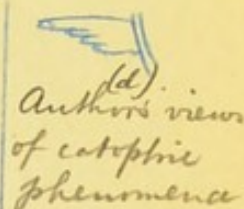 (d)
Author's views
of catoptric
phenomena